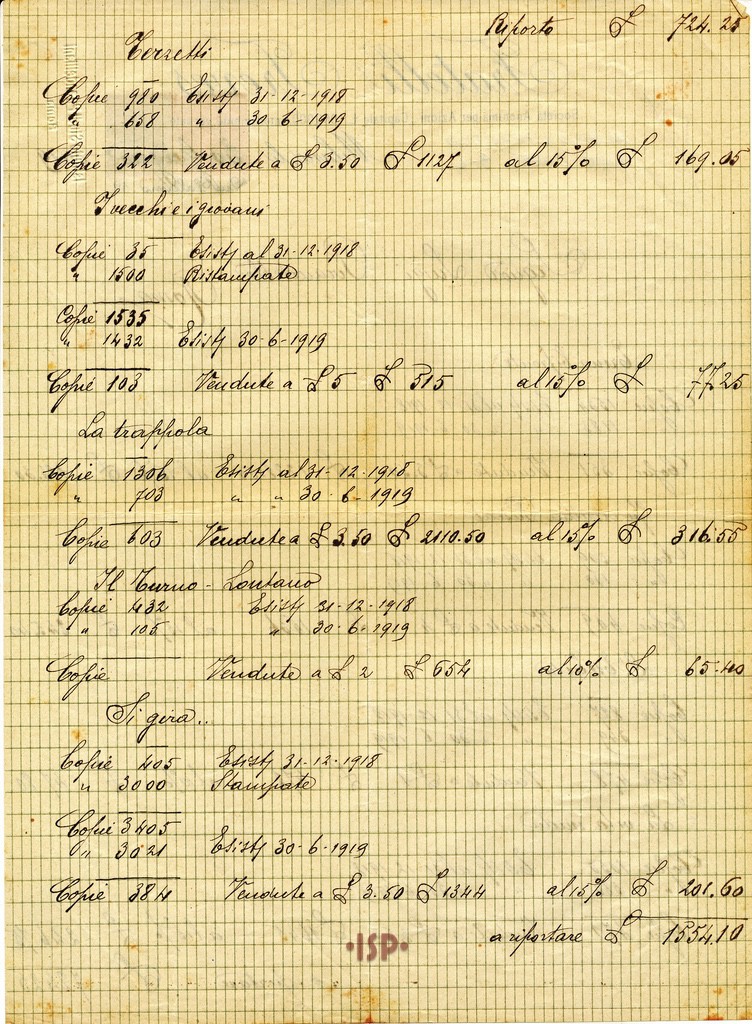 Riporto £ 724.25
Terzetti
Copie 980 Esisti 31-12-1918
" 658 " 30-6-1919
Copie 322 Vendute a £ 3.50 £ 1127 al 15% £ 169.05
I vecchi e i giovani
Copie 35 Esisti al 31-12-1918
" 1500 Ristampate
Copie 1535
" 1432 Esisti 30-6-1919
Copie 103 Vendute a £ 5 £ 515 al 15% £ 77.25
La trappola
Copie 1306 Esisti al 31-12-1918
" 703 " " 30-6-1919
Copie 603 Vendute a £ 3.50 £ 2110.50 al 15% £ 316.55
Il Turno - Lontano
Copie 432 Esisti 31-12-1918
" 105 " 30-6-1919
Copie Vendute a £ 2 £ 654 al 10% £ 65.40
Si gira..
Copie 405 Esisti 31-12-1918
" 3000 Stampate
Copie 3405
" 3021 Esisti 30-6-1919
Copie 384 Vendute a £ 3.50 £ 1344 al 15% £ 201.60
a riportare £ 1554.10
•ISP•